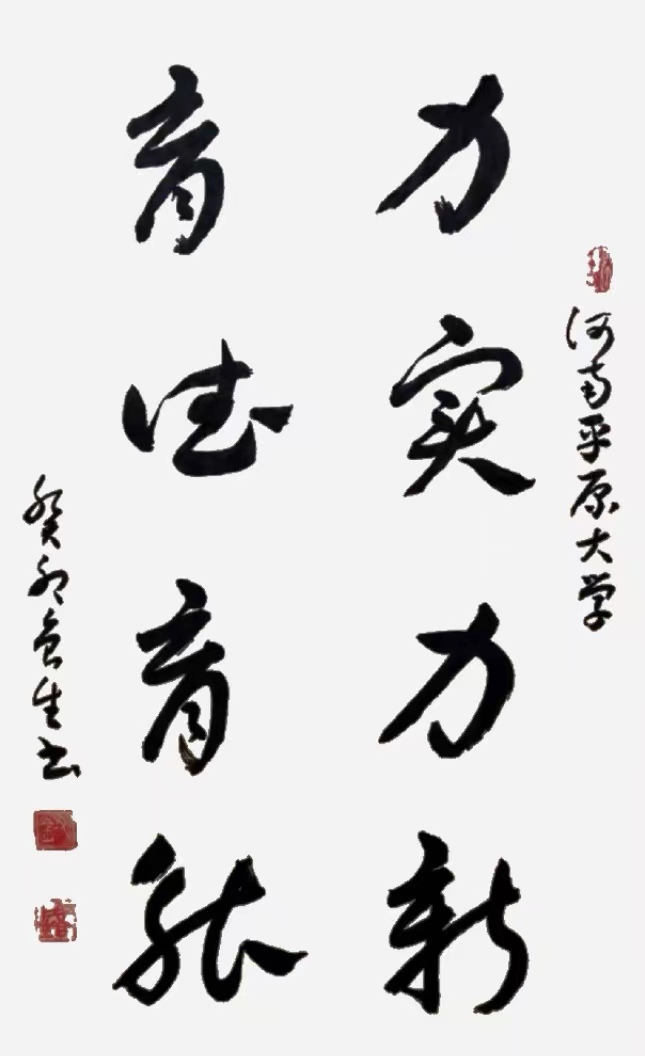 河南平原大学
力实力新
育德育能
癸卯 生书